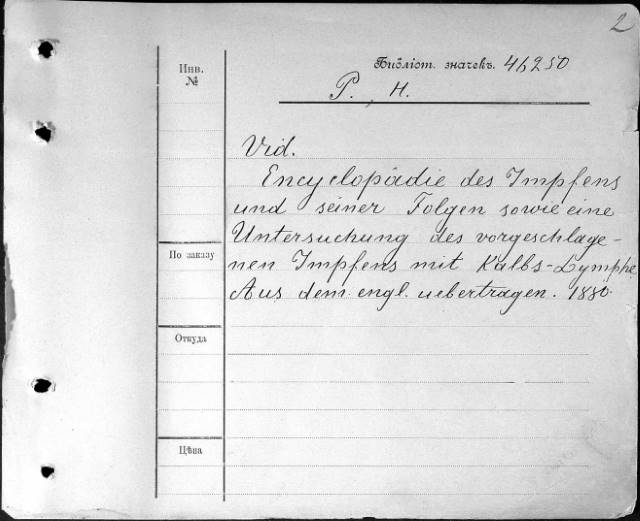 2
Инв.
№
Библiот. значекъ. 46250
P. , H.
Vid.
Encyclopädie des Impfens
und seiner Folgen sowie eine
Untersuchung des vorgeschlage-
nen Impfens mit Kalbs-Lymphe
Aus dem engl. uebertragen. 1880.
По заказу
Откуда
Цѣна